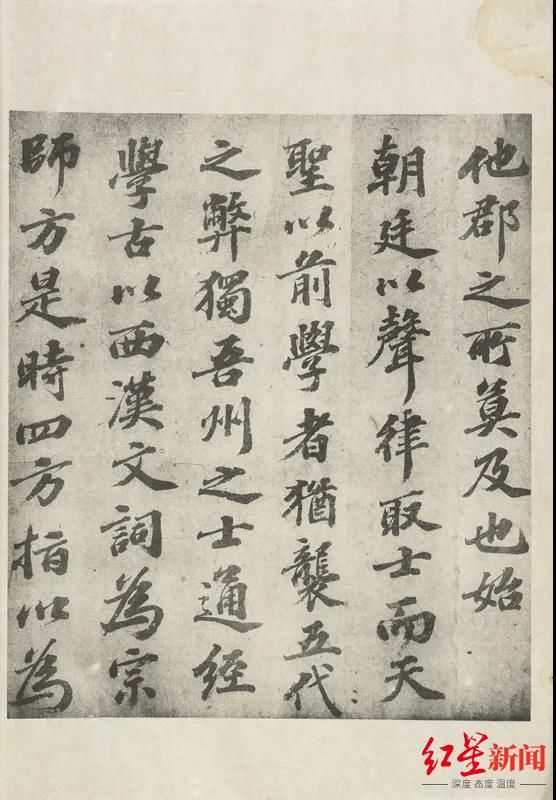 他郡之所莫及也始
朝廷以聲律取士而天
聖以前學者猶襲五代
之弊獨吾州之士通經
學古以西漢文詞為宗
師方是時四方指以為
红星新闻
深度 态度 温度